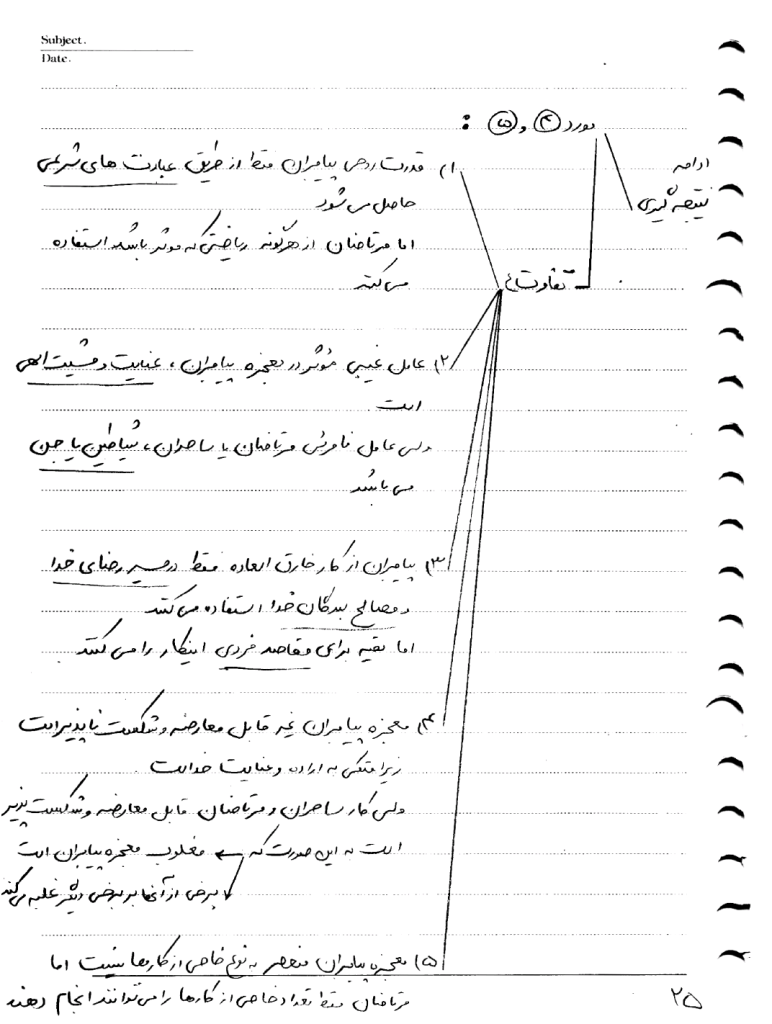 Subject.
Date.
مورد ۴ و ۵ :
ادامه
نتیجه گیری
تفاوت ها
۱) قدرت روحی پیامبران فقط از طریق عبادت های شرعی
حاصل می شود
اما مرتاضان از هرگونه ریاضتی که موثر باشد استفاده
می کنند
۲) عامل غیبی مؤثر در معجزه پیامبران ، عنایت و مشیت الهی
است
ولی عامل نامرئی مرتاضان یا ساحران ، شیاطین یا جن
می باشد
۳) پیامبران از کار خارق العاده فقط در مسیر رضای خدا
و مصالح بندگان خدا استفاده می کنند
اما بقیه برای مقاصد فردی اینکار را می کنند
۴) معجزه پیامبران غیر قابل معارضه و شکست ناپذیر است
زیرا متکی به اراده و عنایت خداست
ولی کار ساحران و مرتاضان قابل معارضه و شکست پذیر
است به این صورت که ← مغلوب معجزه پیامبران است
برخی از آنها بر برخی دیگر غلبه می کند
۵) معجزه پیامبران منحصر به نوع خاصی از کارها نیست اما
مرتاضان فقط تعداد خاصی از کارها را می توانند انجام دهند
۲۵